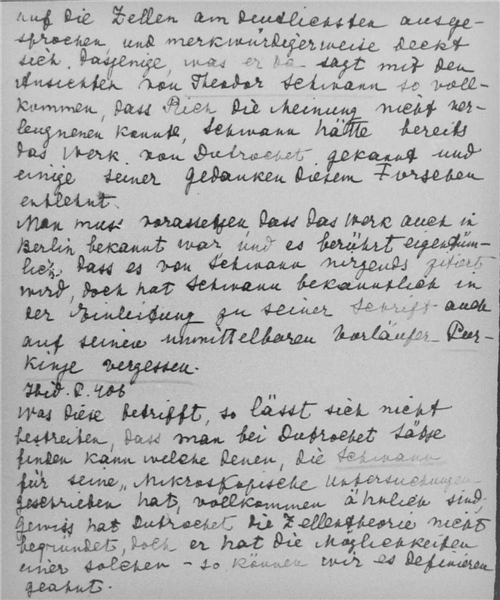 auf die Zellen am deutlichsten ausge-
sprochen, und merkwürdigerweise deckt
sich dasjenige, was er da sagt mit den
Ansichten von Theodor Schwann so voll-
kommen, dass Rich die Meinung nicht ver-
leugnenen konnte, Schwann hätte bereits
das Werk von Dutrochet gekannt und
einige seiner Gedanken diesem Forscher
entlehnt.
Man muss vorassetzen, dass das Werk auch in
Berlin bekannt war und es berührt eigentüm-
lich, dass es von Schwann nirgends zitiert
wird, doch hat Schwann bekanntlich in
der Einleitung zu seiner Schrift auch
auf seinen unmittelbaren Vorläufer Pur-
kinje vergessen.
Ibid. P. 406
Was diese betrifft, so lässt sich nicht
bestreiten, dass man bei Dutrochet Sätze
finden kann welche denen, die Schwann
für seine „Mikroskopische Untersuchungen
geschrieben hat, vollkommen ähnlich sind;
gewiss hat Dutrochet die Zellentheorie nicht
begründet, doch er hat die Möglichkeiten
einer solchen - so können wir es definieren
geahnt.